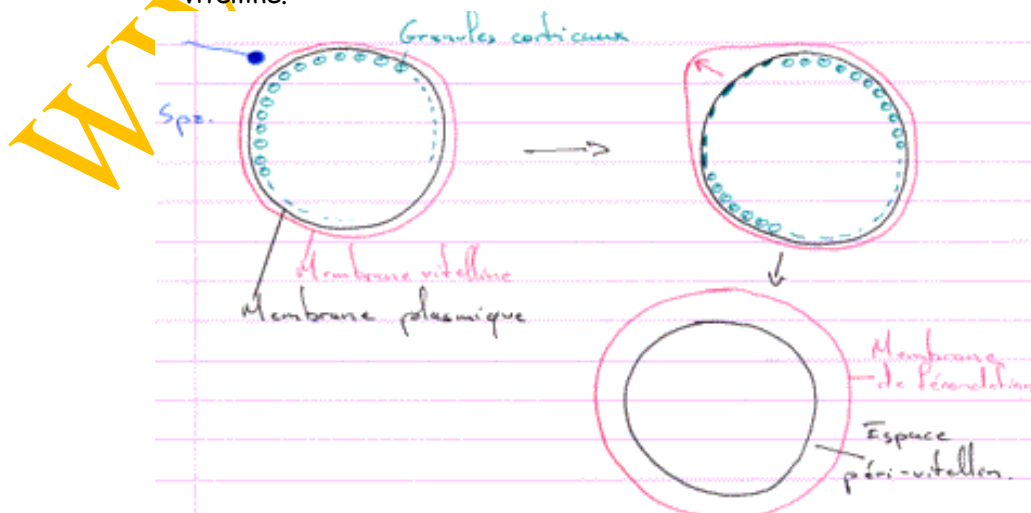 vitelline.
Granules corticaux
Spz.
Membrane vitelline
Membrane plasmique
Membrane
de fécondation
Espace
péri-vitellin.